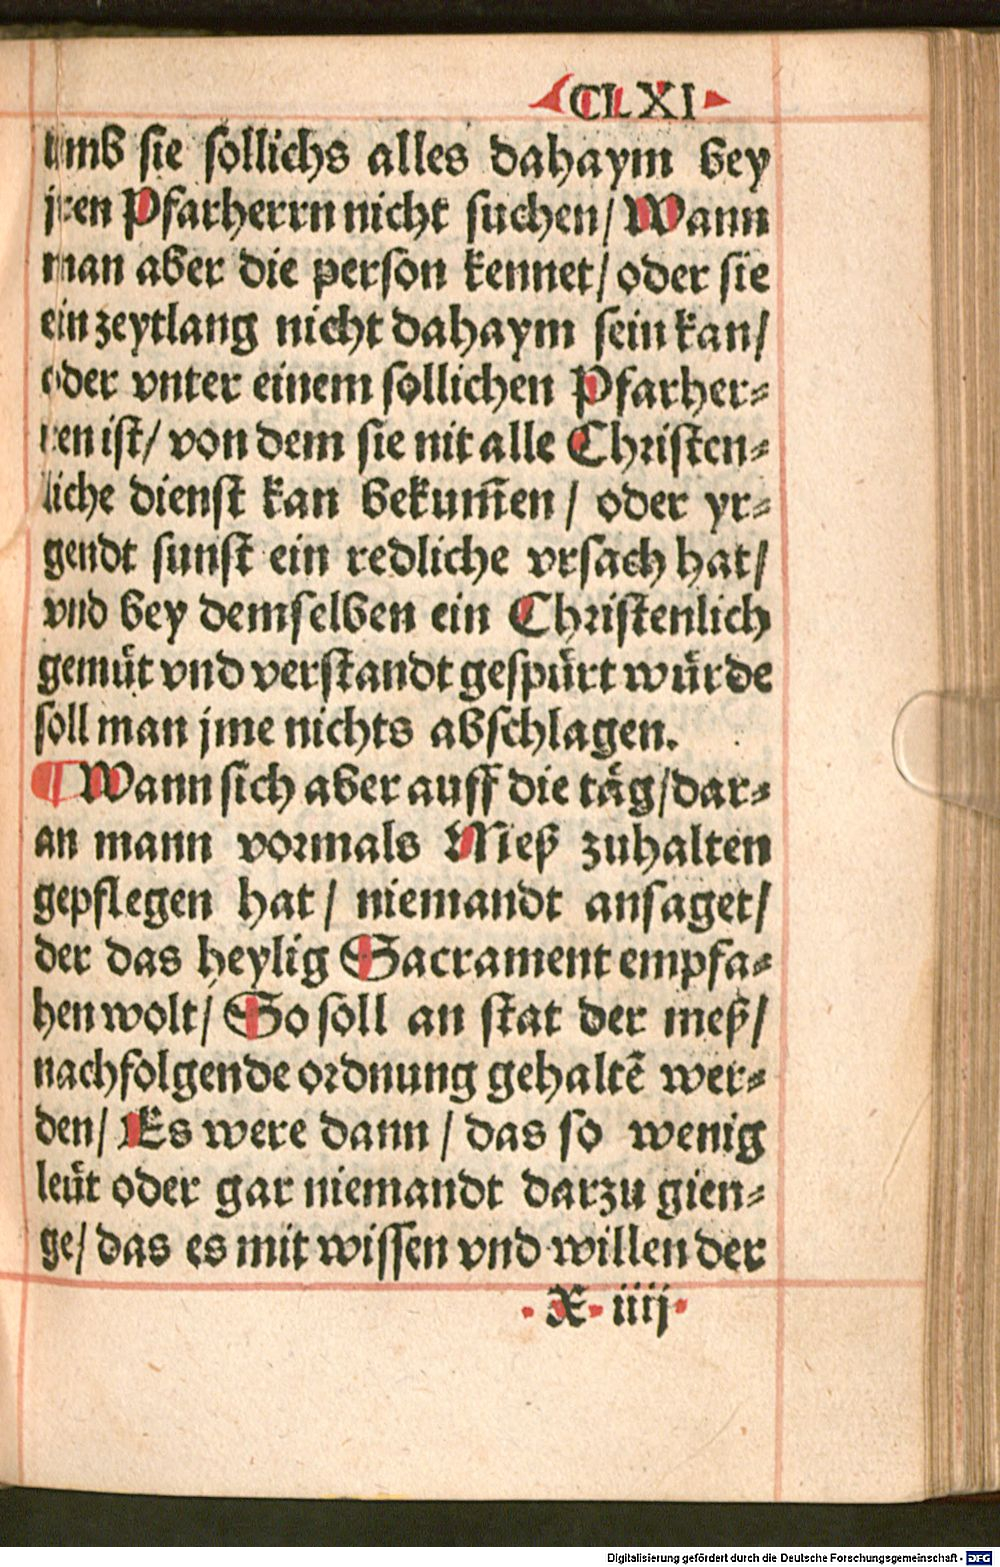 CLXI
umb sie sollichs alles dahaym bey
jren Pfarherrn nicht suchen/ Wann
man aber die person kennet/ oder sie
ein zeytlang nicht dahaym sein kan/
oder vnter einem sollichen Pfarher⸗
ren ist/ von dem sie nit alle Christen⸗
liche dienst kan bekum̃en / oder yr⸗
gendt sunst ein redliche vrsach hat/
vnd bey demselben ein Christenlich
gemuͤt vnd verstandt gespuͤrt wuͤrde
soll man jme nichts abschlagen.
¶ Wann sich aber auff die taͤg/dar⸗
an mann vormals Meß zuhalten
gepflegen hat / niemandt ansaget/
der das heylig Sacrament empfa⸗
hen wolt/ So soll an stat der meß/
nachfolgende ordnung gehaltẽ wer⸗
den/ Es were dann / das so wenig
leuͤt oder gar niemandt darzu gien⸗
ge/ das es mit wissen vnd willen der
X iiij
Digitalisierung gefördert durch die Deutsche Forschungsgemeinschaft - DFG